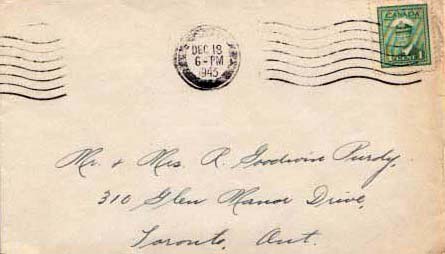 CANADA
DEC 18
6 - PM
1945
Mr. + Mrs. R. Goodwin Purdy,
310 Glen Manor Drive,
Toronto, Ont.